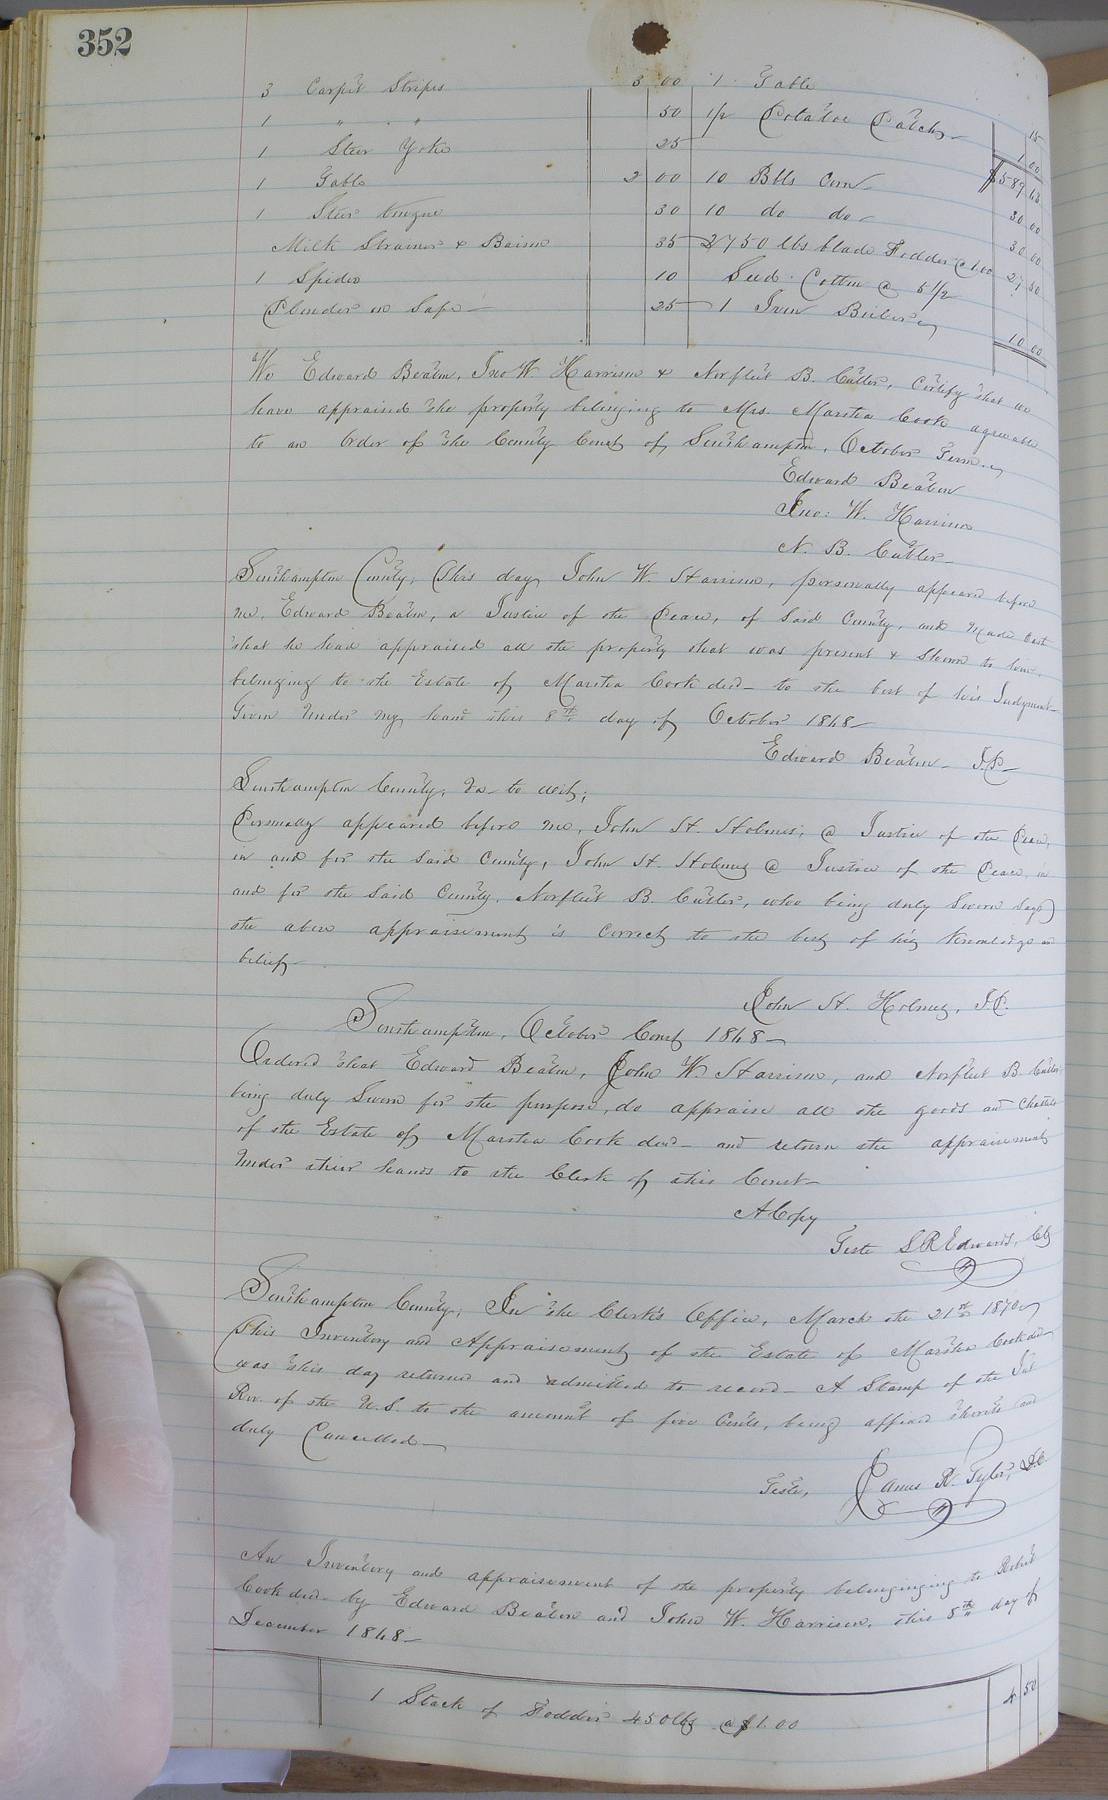 352
3 Carpet Stripes 3 00 1 Table 15
1 " " 50 1/2 Potatoe Patch 1 00
1 Steer Yoke 25 $589 63
1 Table 2 00 10 Bbls Corn 30 00
1 Steer tongue 30 10 do do 30 00
Milk Strainer & Baisin 35 2750 lbs blade Fodder @ 1.00 27 50
1 Spider 10 Seed Cotton @ 5 1/2
Plunder in Safe 25 1 Iron Boiler 10 00
We Edward Beaton, Jno W. Harrison & Norfleet B. Cutler, Certify that we
have appraised the property belonging to Mrs. Martha Cook agreeable
to an Order of the County Court of Southampton, October Term
Edward Beaton
Jno: W. Harrison
N. B. Cutler
Southampton County, This day John W. Harrison, personally appeared before
me, Edward Beaton, a Justice of the Peace, of Said County, and Made Oath
that he had appraised all the property that was present & Shown to him,
belonging to the Estate of Martha Cook decd to the best of his Judgment
Given Under My hand this 8th day of October 1868
Edward Beaton J.P.
Southampton County, Va to wit;
Personally appeared before me, John H. Holmes, @ Justice of the Peace,
in and for the Said County, John H. Holmes @ Justice of the Peace in
and for the Said County, Norfleet B. Cutler, who being duly Sworn Says
the above appraisement is Correct to the best of his Knowledge and
belief
John H. Holmes, J.P.
Southampton, October Court 1868
Ordered that Edward Beaton, John W. Harrison, and Norfleet B. Cutler
being duly Sworn for the purpose, do appraise all the goods and Chattels
of the Estate of Martha Cook decd and return the appraisement
Under their hands to the Clerk of this Court
A Copy
Teste L R Edwards, Clk
Southampton County, In the Clerk's Office, March the 21st 1870
This Inventory and Appraisement of the Estate of Martha Cook decd
was this day returned and admitted to record A Stamp of the Int
Rev. of the U.S. to the amount of five Cents, being affixed thereto and
duly Cancelled
Teste, James R. Tyler, D.C.
An Inventory and appraisement of the property belonginging to Robert
Cook decd by Edward Beaton and John W. Harrison, this 8th day of
December 1868
1 Stack of Fodder 450 lbs @ $1.00 4 50